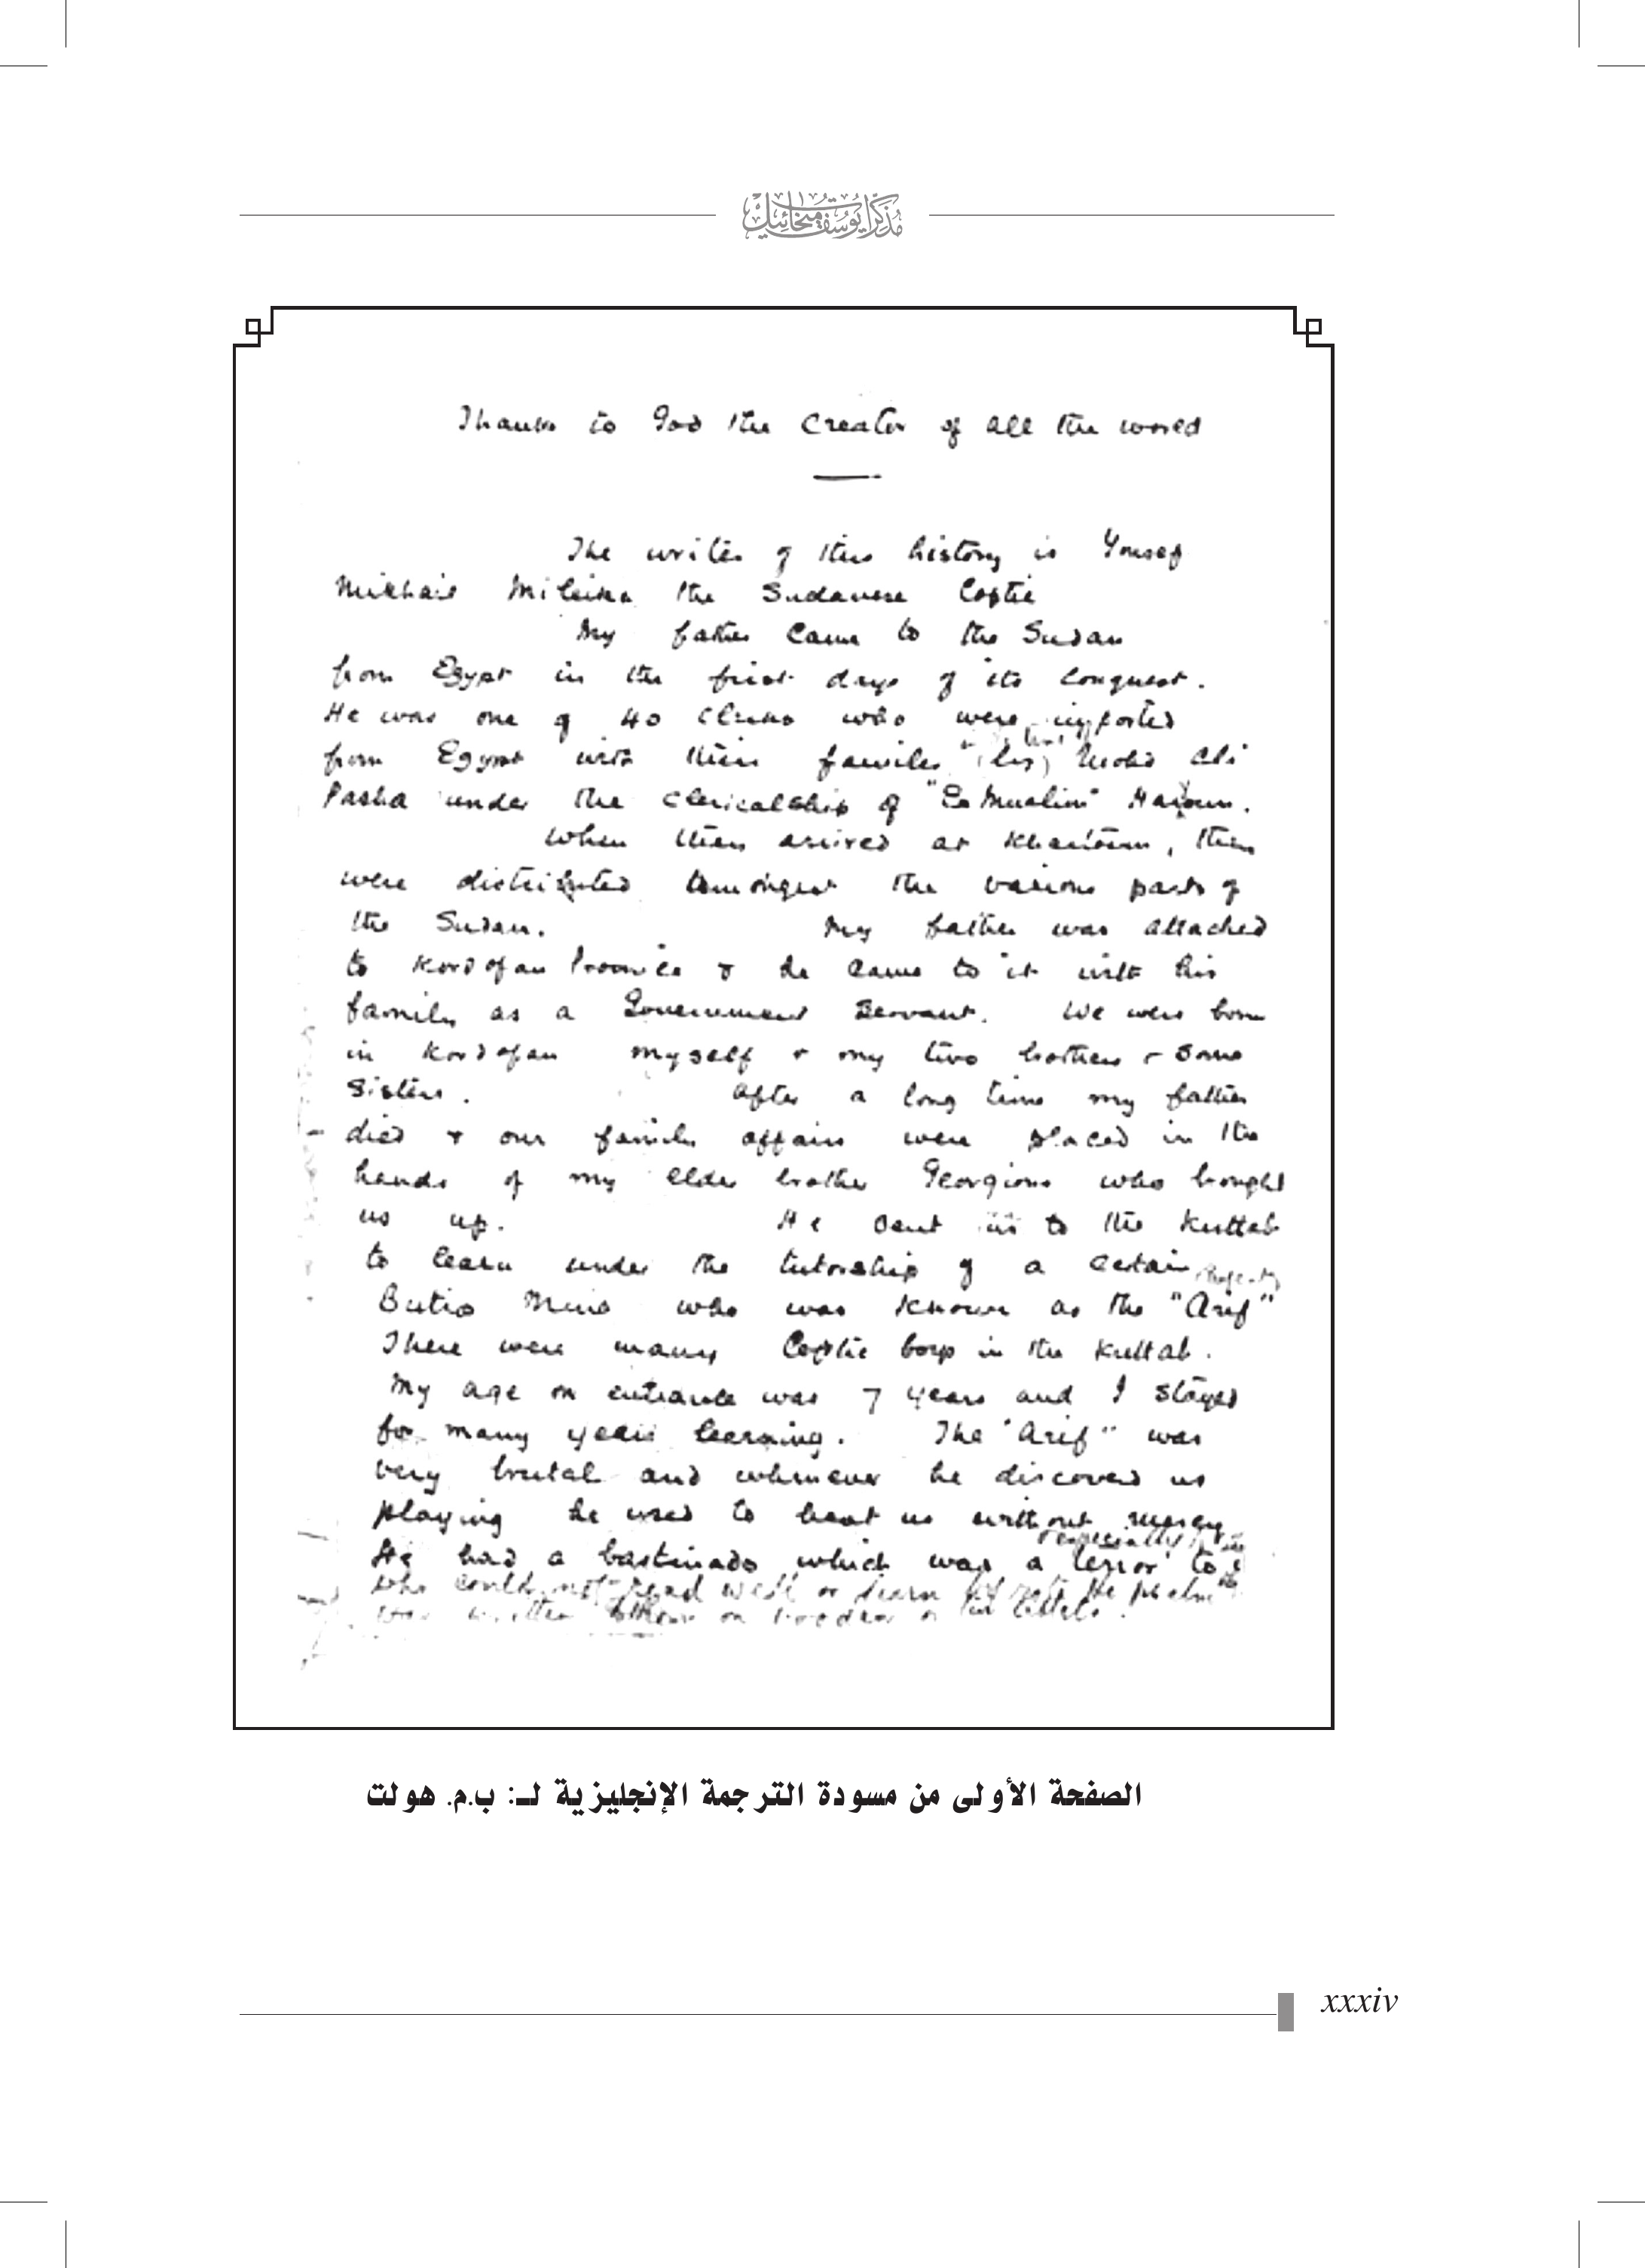 مذكرات يوسف ميخائيل
Thanks to God the Creator of all the world
The writer of this history is Yousef
Mikhail Mileika the Sudanese Coptic
My father came to the Sudan
from Egypt in the first days of its conquest.
He was one of 40 clerks who were imported
from Egypt with their families (by) Mohd Ali
Pasha under the clericalship of "El Mualim"
When they arrived at Khartoum, they
were distributed amongest the various parts of
the Sudan. My father was attached
to Kordofan Province & he came to it with his
family as a Government servant. We were born
in Kordofan myself & my two brothers & some
sisters. After a long time my father
died & our family affairs were placed in the
hands of my elder brother Georgious who brought
us up. He sent us to the Kuttab
to learn under the tutorship of a certain
who was known as the "Arif"
There were many Coptic boys in the Kuttab.
My age on entrance was 7 years and I stayed
for many years learning. The "Arif" was
very brutal and whenever he discovered us
playing he used to beat us without mercy
especially
He had a bastinado which was a terror to
who could not read well or learn the
written on
الصفحة الأولى من مسودة الترجمة الإنجليزية لـ: ب.م. هولت
xxxiv